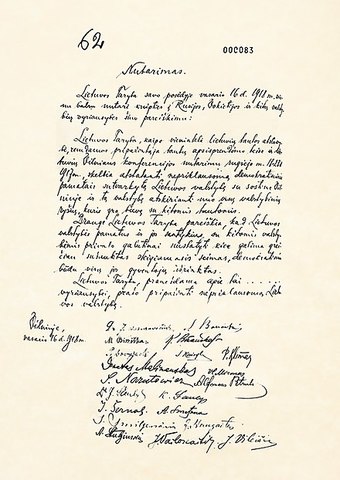 62
000083
Nutarimas.
Lietuvos Taryba savo posėdyje vasario 16 d. 1918 m. vie-
nu balsu nutarė kreiptis į Rusijos, Vokietijos ir kitų valsty-
bių vyriausybes šiuo pareiškimu:
Lietuvos Taryba, kaipo vienintelė lietuvių tautos atstovy-
bė, remdamos pripažintąja tautų apsisprendimo teise ir lie-
tuvių Vilniaus konferencijos nutarimu rugsėjo m. 18-23 d.
1917 m., skelbia atstatanti nepriklausomą demokratiniais
pamatais sutvarkytą Lietuvos valstybę su sostine Vil-
niuje ir tą valstybę atskirianti nuo visų valstybinių
ryšių, kurie yra buvę su kitomis tautomis.
Drauge Lietuvos Taryba pareiškia, kad Lietuvos
valstybės pamatus ir jos santykius su kitomis valsty-
bėmis privalo galutinai nustatyti kiek galima grei-
čiau sušauktas steigiamasis seimas, demokratiniu
būdu visų jos gyventojų išrinktas.
Lietuvos Taryba, pranešdama apie tai . . . . . .
vyriausybei, prašo pripažinti nepriklausomą Lie-
tuvos valstybę.
Vilniuje,
vasario 16 d. 1918 m.
M. Biržiška
S. Narutowicz
J. Vileišis